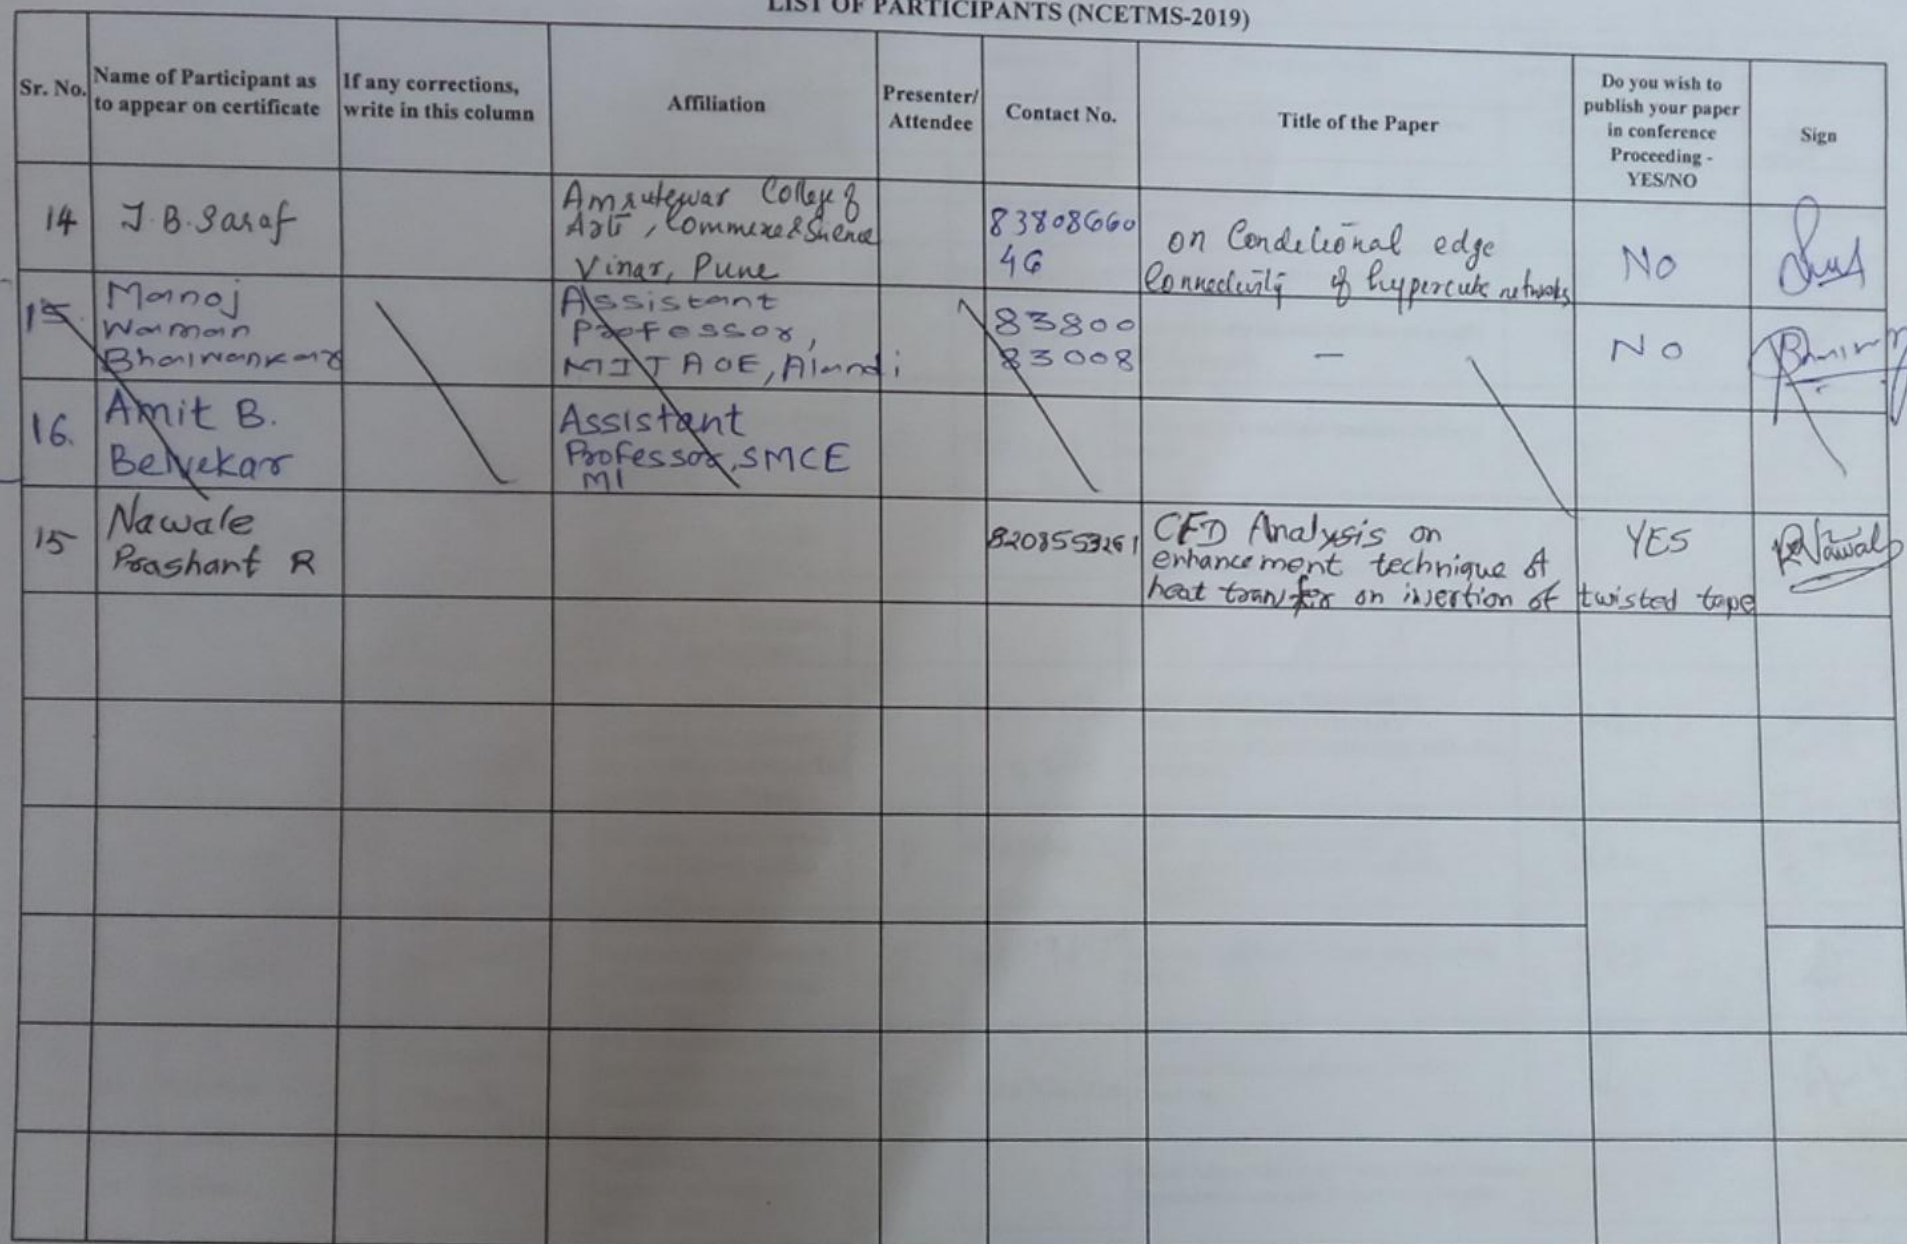 LIST OF PARTICIPANTS (NCETMS-2019)
Sr. No.
Name of Participant as
to appear on certificate
If any corrections,
write in this column
Affiliation
Presenter/
Attendee
Contact No.
Title of the Paper
Do you wish to
publish your paper
in conference
Proceeding -
YES/NO
Sign
14
J.B.Saraf
Amrutewar College of
Art, Commerce & Science
Vinar, Pune
83808660
46
on Conditional edge
Connectivity of hypercube networks
No
15.
Manoj
Waman
Bhaiwankar
Assistant
Professor,
MIT AOE, Alandi
83800
83008
-
No
16.
Amit B.
Belvekar
Assistant
Professor, SMCE
MI
15
Nawale
Prashant R
8208553261
CFD Analysis on
enhancement technique of
heat transfer on insertion of twisted tape
YES
PRNawale